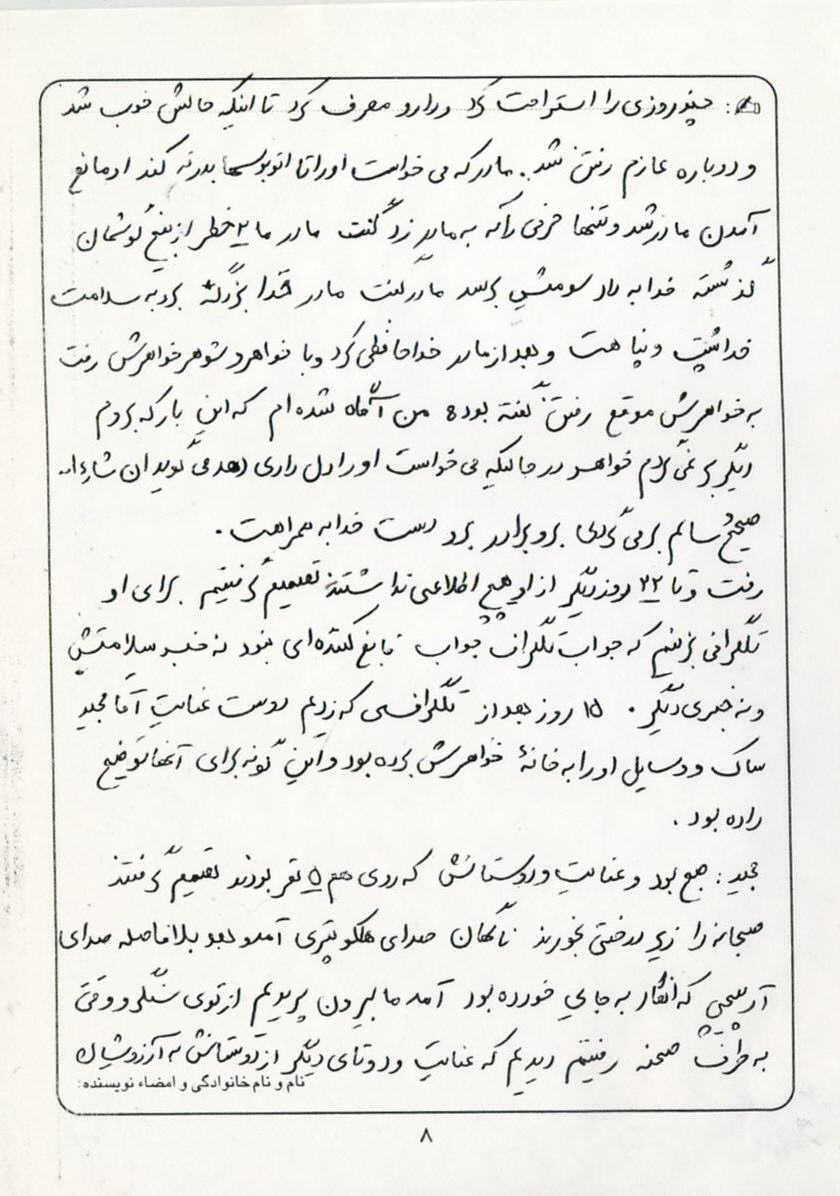 چند روزی را استراحت کرد و دارو مصرف کرد تا اینکه حالش خوب شد
و دوباره عازم رفتن شد. مادر که می خواست او را تا اتوبوسها بدرقه کند او مانع
آمدن مادر شد و تنها حرفی را که به مادر زد گفت مادر ما ۲ خطر از بیخ گوشمان
گذشته خدا به داد سومیش برسد مادر گفت مادر خدا بزرگه برو به سلامت
خدا پشت و پناهت و بعد از مادر خداحافظی کرد و با خواهر و شوهر خواهرش رفت
به خواهرش موقع رفتن گفته بود من آگاه شده ام که این بار که بروم
دیگر بر نمی گردم خواهر در حالیکه می خواست او را دلداری دهد می گوید ان شاءا..
صحیح و سالم برمی گردی برو برادر برو دست خدا به همراهت.
رفت و تا ۲۲ روز دیگر از او هیچ اطلاعی نداشتند تصمیم گرفتیم برای او
تلگرافی بزنیم که جواب تلگراف جواب قانع کننده ای نبود نه خبر سلامتیش
و نه خبری دیگر. ۱۵ روز بعد از تلگرافی که زدیم دوست عنایت آقا مجید
ساک و وسایل او را به خانهٔ خواهرش برده بود و این گونه برای آنها توضیح
داده بود.
مجید: صبح بود و عنایت و دوستانش که روی هم ۵ نفر بودند تصمیم گرفتند
صبحانه را زیر درختی بخورند ناگهان صدای هلکوپتری آمد و بعد بلافاصله صدای
آرپیجی که انگار به جایی خورده بود آمد ما بیرون پریدیم از توی سنگر و وقتی
به طرف صحنه رفتیم دیدیم که عنایت و دو تای دیگر از دوستانش به آرزوشان
نام و نام خانوادگی و امضاء نویسنده:
۸